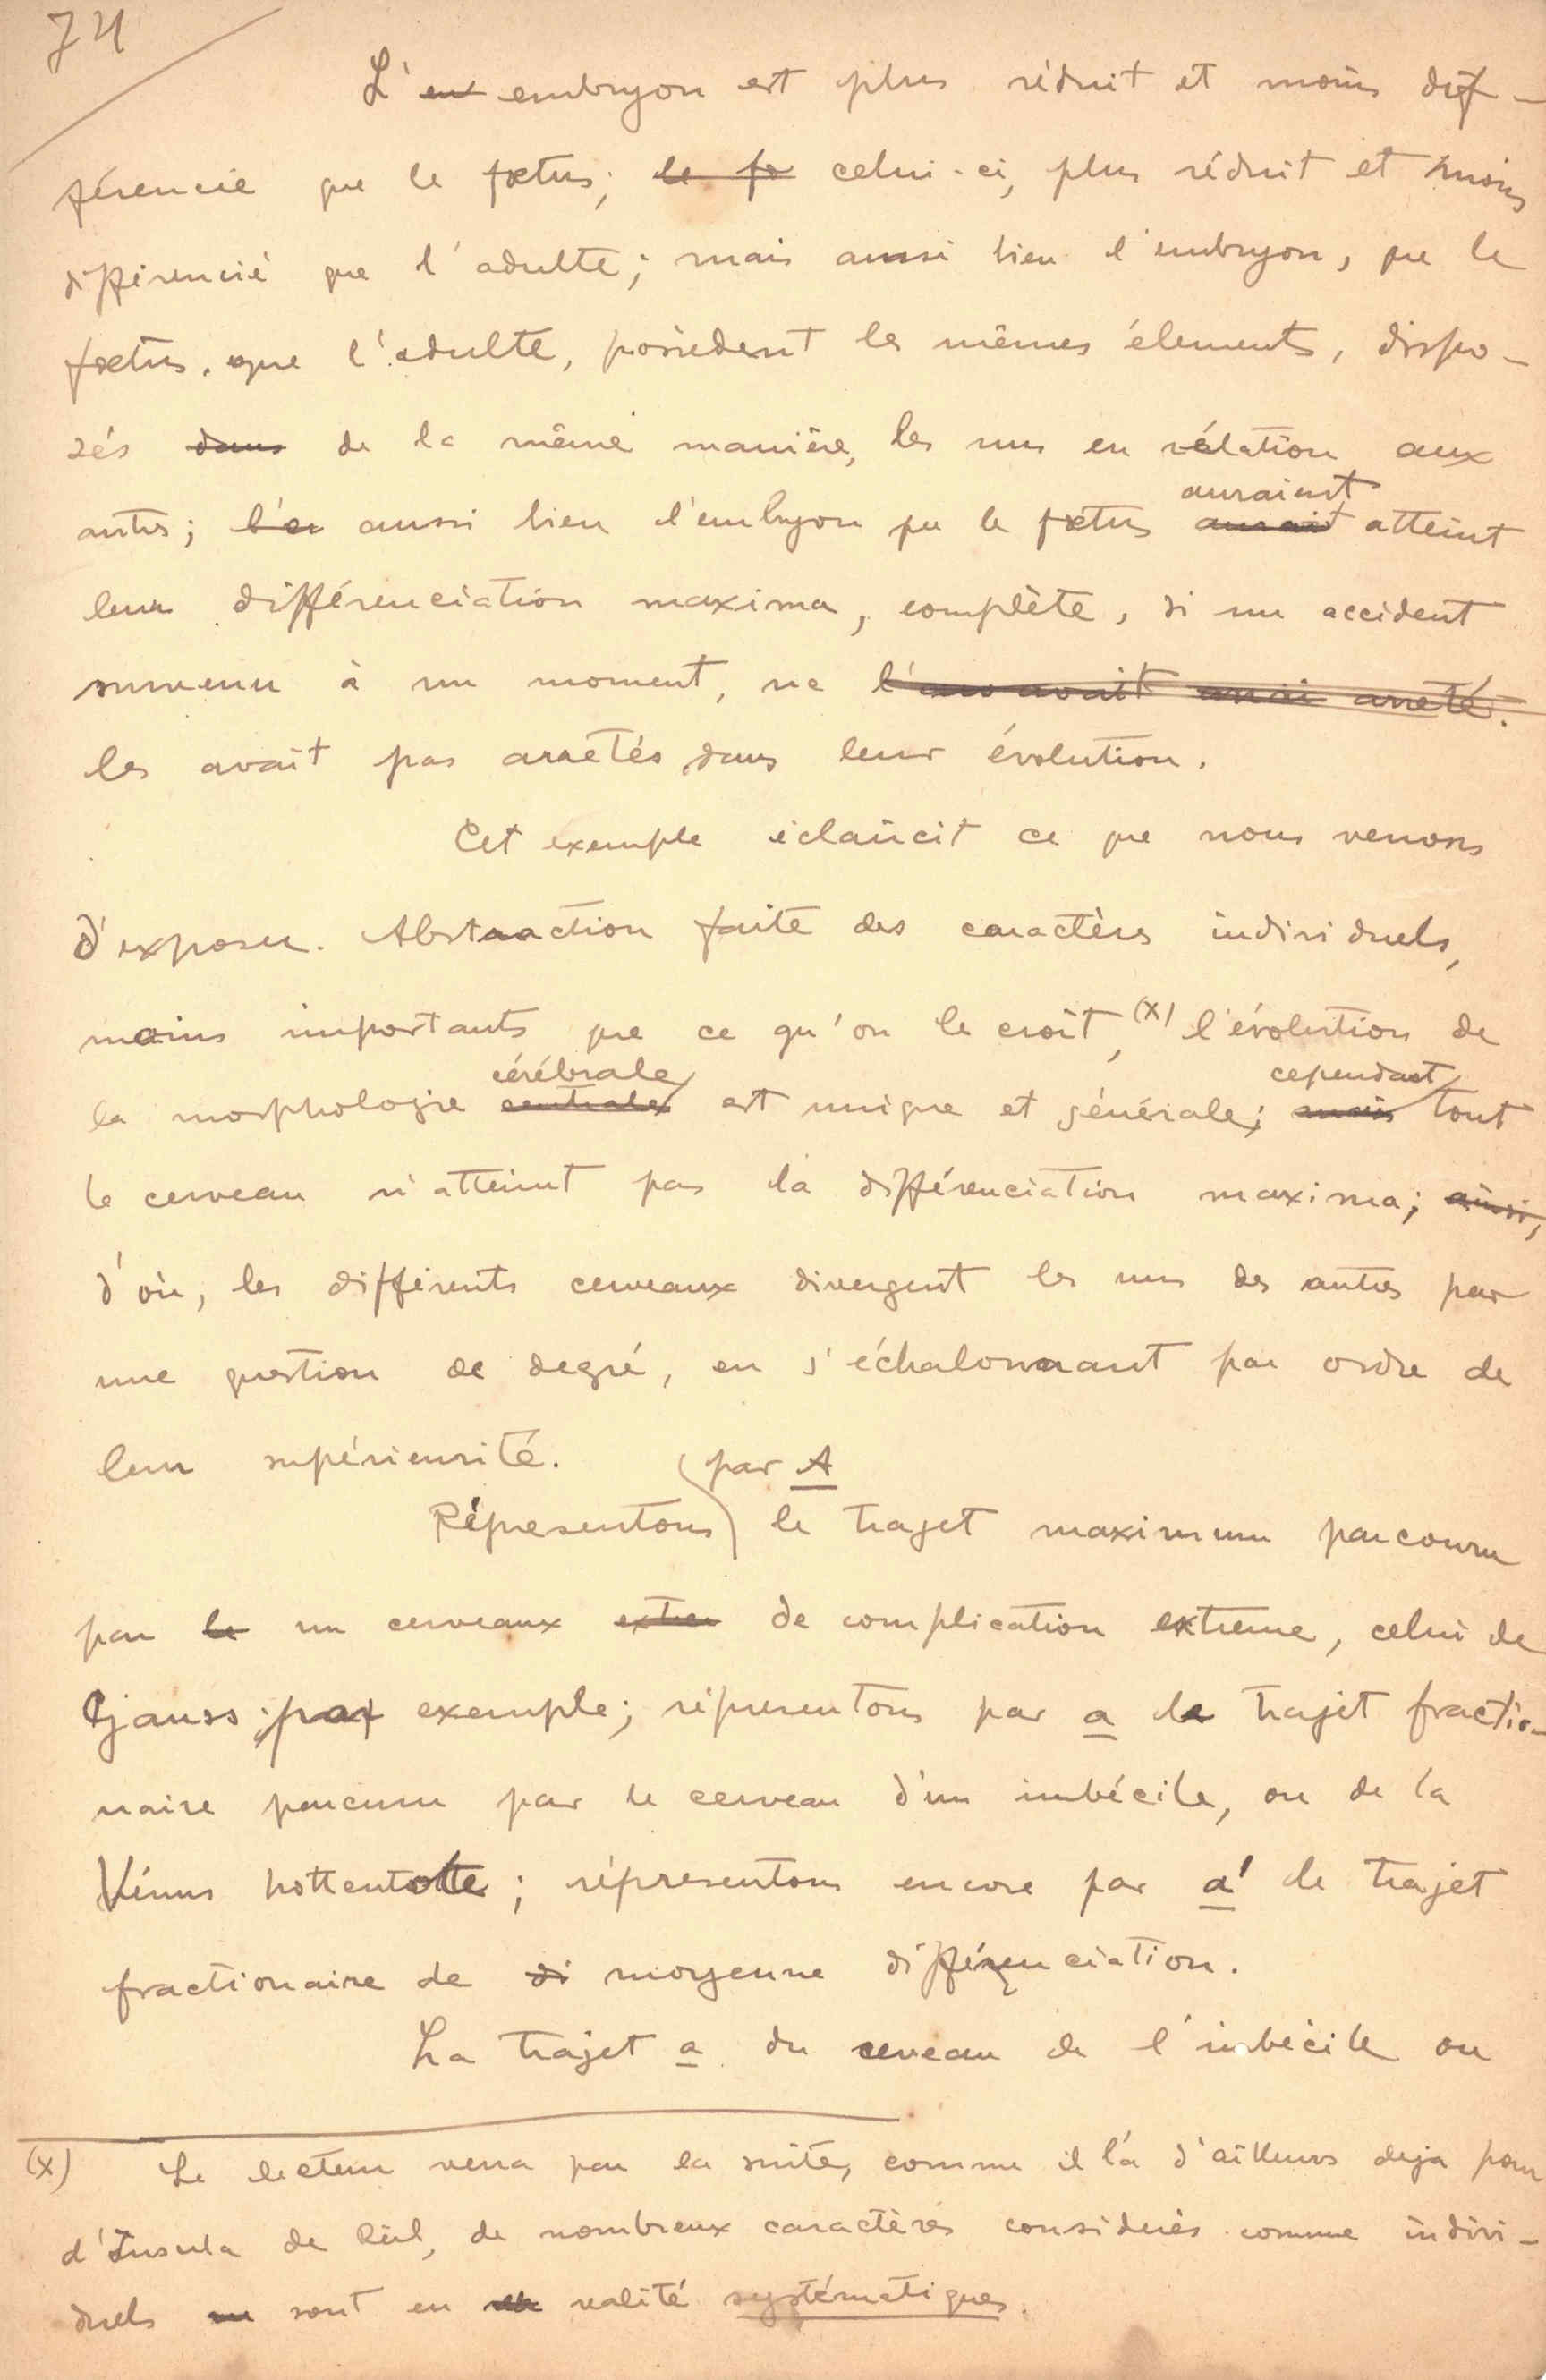 74
L'em embryon est plus réduit et moins dif-
férencié que le fœtus; le fo celui-ci, plus réduit et moins
différencié que l'adulte; mais aussi bien l'embryon, que le
fœtus, que l'adulte, possèdent les mêmes élements, dispo-
sés dans de la même manière, les uns en rélation aux
autres; l'em aussi bien l'embryon que le fœtus aurait auraient atteint
leur différenciation maxima, complète, si un accident
survenu à un moment, ne l' avait arreté.
les avait pas arretés dans leur évolution.
Cet éxemple éclaircit ce que nous venons
d'exposer. Abstraction faite des caractères individuels,
moins importants que ce qu'on le croit, (x) l'évolution de
la morphologie centrale cérébrale est unique et générale; mais cependant tout
le cerveau n'atteint pas la différenciation maxima; ainsi,
d'où, les différents cerveaux divergent les uns des autres par
une question de degré, en s'échalonnant par ordre de
leur supérieurité.
Répresentons par A le trajet maximum parcouru
par le un cerveaux extre de complication extreme, celui de
Gjauss par exemple; répresentons par a le trajet fractio-
naire parcouru par le cerveau d'un imbécile, ou de la
Vénus hottentotte; répresentons encore par a' le trajet
fractionaire de di moyenne différenciation.
La trajet a du cerveau de l'imbécile ou
(x) Le lecteur verra par la suite, comme il l'a d'ailleurs deja pour
d'Insula de Reil, de nombreux caractères considerés comme indivi-
duels sont en realité systématiques.